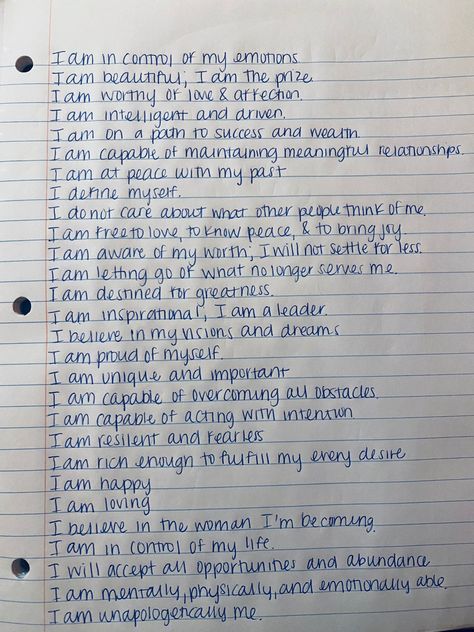 I am in control of my emotions
I am beautiful; I am the prize
I am worthy of love & affection.
I am intelligent and driven.
I am on a path to success and wealth.
I am capable of maintaining meaningful relationships.
I am at peace with my past
I define myself.
I do not care about what other people think of me.
I am free to love, to know peace, & to bring joy.
I am aware of my worth; I will not settle for less.
I am letting go of what no longer serves me.
I am destined for greatness.
I am inspirational, I am a leader.
I believe in my visions and dreams
I am proud of myself.
I am unique and important
I am capable of overcoming all obstacles.
I am capable of acting with intention
I am resilent and fearless
I am rich enough to fulfill my every desire
I am happy
I am loving
I believe in the woman I'm becoming.
I am in control of my life.
I will accept all opportunities and abundance
I am mentally, physically, and emotionally able.
I am unapologetically me.